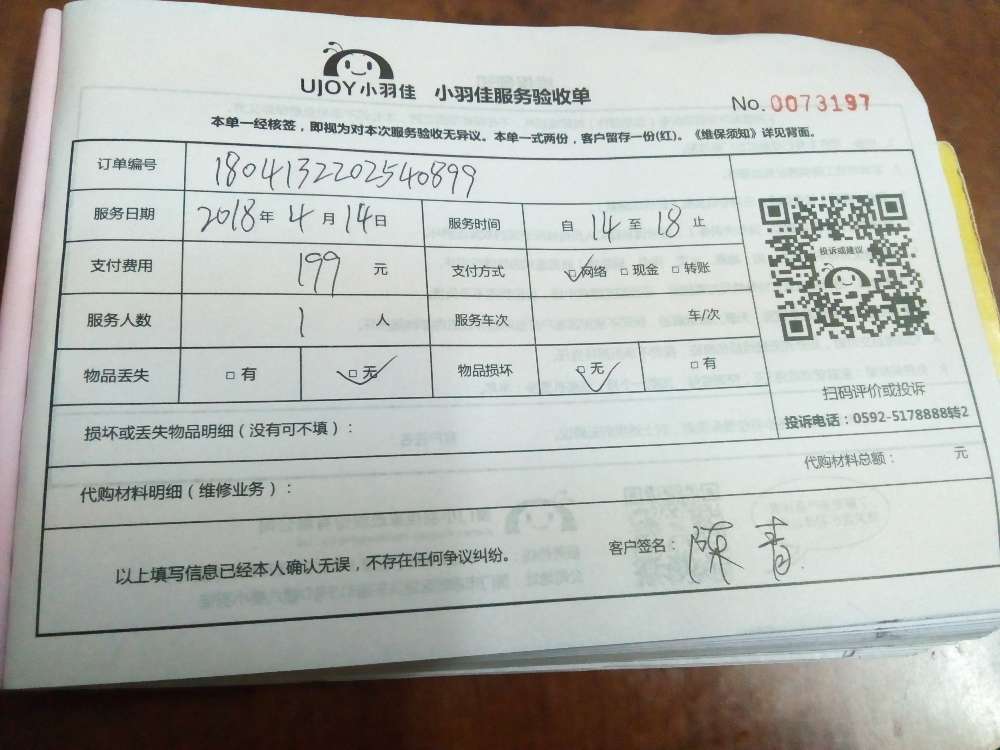 UJOY小羽佳 小羽佳服务验收单
No. 0073197
本单一经核签，即视为对本次服务验收无异议。本单一式两份，客户留存一份(红)。《维保须知》详见背面。
订单编号 1804132202540899
服务日期 2018年4月14日 服务时间 自14至18止
支付费用 199元 支付方式 □网络 □现金 □转账
服务人数 1人 服务车次 车/次
物品丢失 □有 □无 物品损坏 □无 □有
投诉或建议
扫码评价或投诉
投诉电话：0592-5178888转2
损坏或丢失物品明细（没有可不填）：
代购材料明细（维修业务）： 代购材料总额： 元
以上填写信息已经本人确认无误，不存在任何争议纠纷。 客户签名：陈青